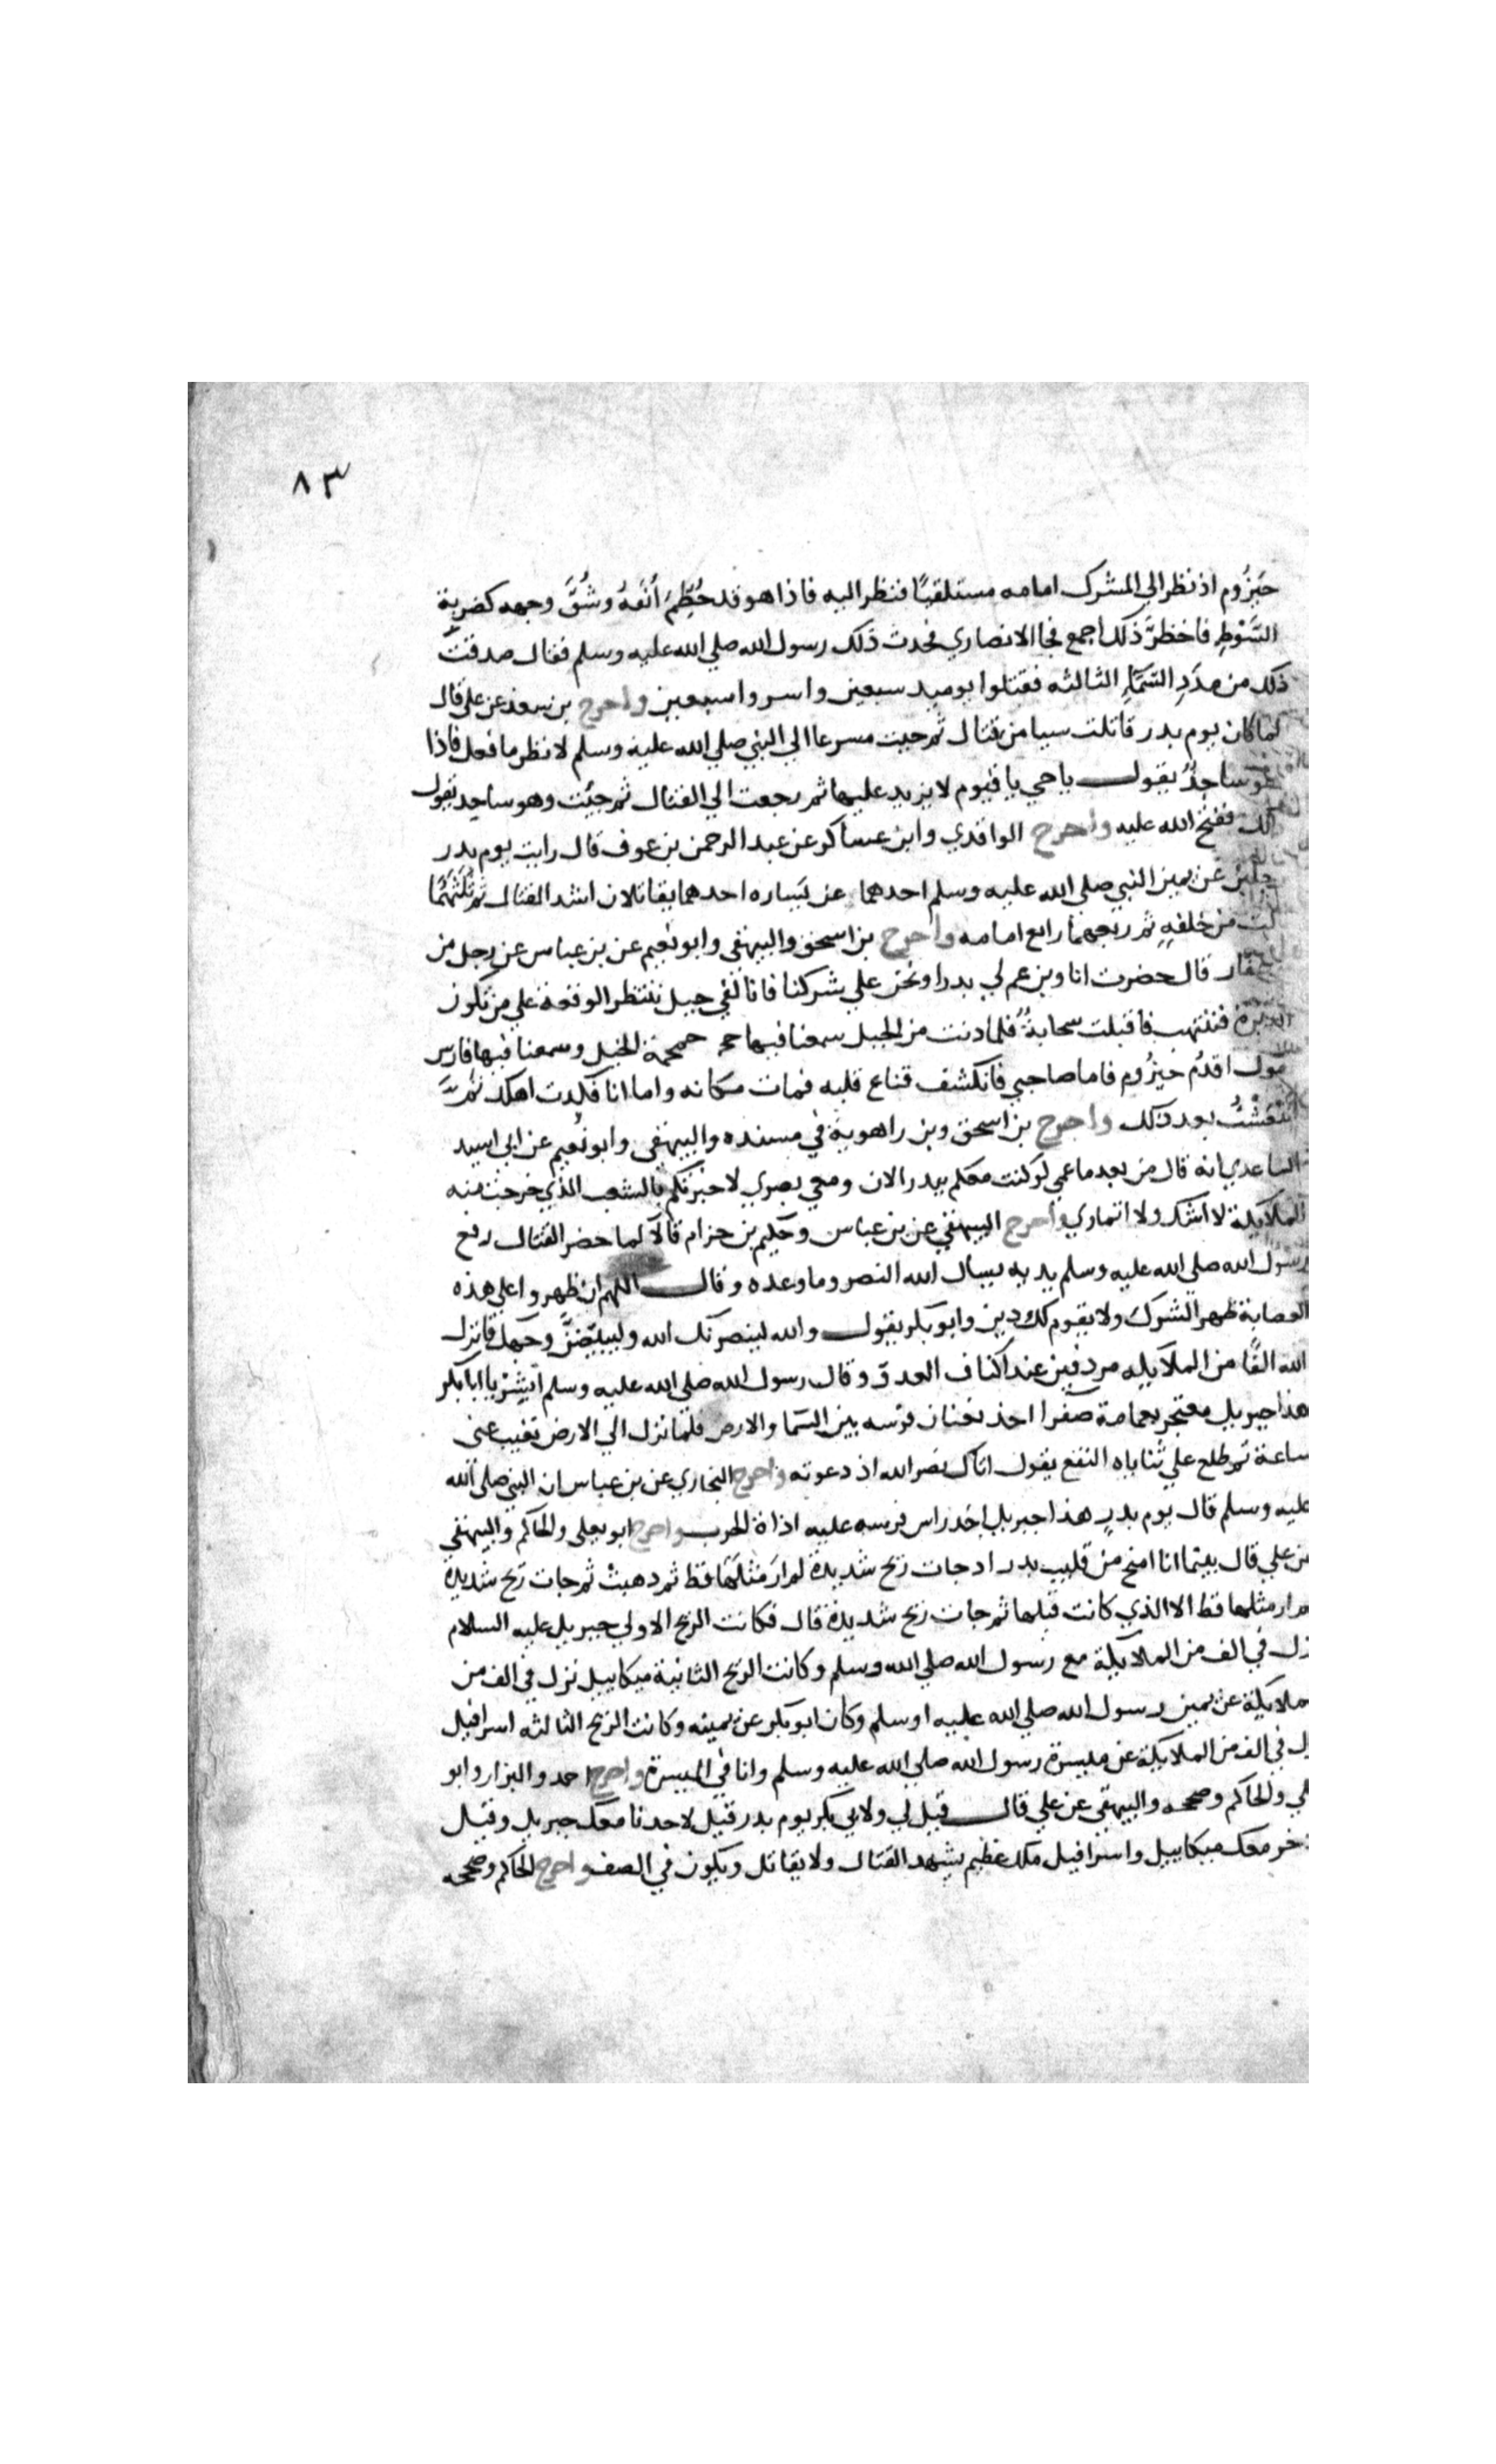 ٨٣
حَيْزُوم اذ نظر الي المشرك امامه مستلقيًا فنظر اليه فاذا هو قد حُطِّمَ أنْفَهُ وشُقَّ وجهه كضربة
السَّوْطِ فاخظرَّ ذلك اجمع فجا الانصاري فحدث ذلك رسول الله صلي الله عليه وسلم فقال صدقت
ذلك من مدَدِ السَّمَاءِ الثالثه فقتلوا يوميد سبعين واسروا سبعين واخرج بن سعد عن علي قال
لما كان يوم بدر قاتلت سيا من قتال ثم جيت مسرعا الي النبي صلي الله عليه وسلم لانظر ما فعل فاذا
هو ساجدٌ يقول يا حي يا قيوم لا يزيد عليها ثم رجعت الي القتال ثم جيئت وهو ساجد يقول
ذلك ففتح الله عليه واخرج الواقدي وابن عساكر عن عبد الرحمن بن عوف قال رايت يوم بدر
رجلين عن يمين النبي صلي الله عليه وسلم احدهما عن يَساره احدهما يقاتلان اشد القتال ثم ثلثهمَا
ثالث من خلفهِ ثم ربعهما رابع امامه واخرج بن اسحق والبيهقي وابو نعيم عن بن عباس عن رجل من
غفار قال حضرت انا وبن عم لي بدرا ونحن علي شركنا فانا لفي جبل ننتظر الوقعة علي من تكون
الدبرة فننتهب فاقبلت سحابةٌ فلما دنت من الجبل سمعنا فيها حمـ حمحمة الخيل وسمعنا فيها فارس
يقول اقدُم حَيزُوم فاما صاحبي فانكشف قناع قلبه فمات مكانه واما انا فكدت اهلك ثم
انتعشتُ بعد ذلك واخرج بن اسحق وبن راهوية في مسنده والبيهقي وابو نعيم عن ابي اسيد
الساعدي انه قال من بعد ما عمي لو كنت معكم ببدر الان ومعي بصري لاخبرتكم بالشعب الذي خرجت منه
الملايكة لا اشك ولا اتماري واخرج البيهقي عن بن عباس وحكيم بن حزام قالا لما حضر القتال رفع
رسول الله صلي الله عليه وسلم يديه يسال الله النصر وما وعده وقال اللهم ان ظهروا علي هذه
العصابة ظهر الشرك ولا يقوم لك دين وابو بكر يقول والله لينصرنك الله وليبيّضنّ وجهك فانزل
الله الفًا من الملايكه مردفين عند اكناف العدو وقال رسول الله صلي الله عليه وسلم ابشِرْ يا ابا بكر
هذا جبريل معتجر بعمامة صفرا اخذ بعنان فرسه بين السَّما والارض فلما نزل الي الارض تغيب عني
ساعة ثم طلع علي ثناياه النقع يقول اتاك نصر الله اذ دعوته واخرج البخاري عن بن عباس ان النبي صلي الله
عليه وسلم قال يوم بدر هذا جبريل اخد راس فرسه عليه اداة الحرب واخرج ابو يعلي والحاكم والبيهقي
عن علي قال بينما انا امتح من قليب بدر ادجات ريح شديدة لم ارَ مثلهَا قط ثم دهبت ثم جات ريح شديدة
لم ار مثلها قط الا الذي كانت قبلها ثم جات ريح شديدة قال فكانت الريح الاولي جبريل عليه السلام
نزل في الف من الملايكة مع رسول الله صلي الله وسلم وكانت الريح الثانية ميكاييل نزل في الف من
الملايكة عن يمين رسول الله صلي الله عليه اوسلم وكان ابو بكر عن يمينه وكانت الريح الثالثه اسرافيل
نزل في الف من الملايكة عن ميسرة رسول الله صلي الله عليه وسلم وانا في الميسرة واخرج احمد والبزار وابو
يعلي والحاكم وصححه والبيهقي عن علي قال قيل لي ولابي بكر يوم بدر قيل لاحدنا معك جبريل وقيل
للاخر معك ميكاييل واسرافيل ملك عظيم يشهد القتال ولا يقاتل ويكون في الصف واخرج الحاكم وصححه